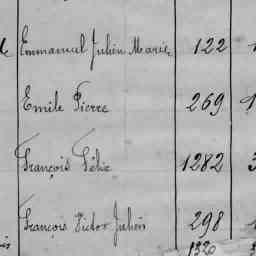 Emmanuel Julien Marie 122
Emile Pierre 269
François Félix 1282
François Victor Julien 298
1320